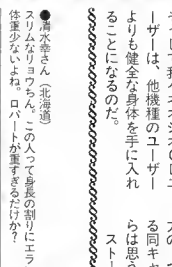 ーザーは、他機種のユーザー
よりも健全な身体を手に入れ
ることになるのだ。
る同キ
らは思う
ストー
●清水幸さん（北海道）
スリムなリョウちん。この人って身長の割りにエラ
体重少ないよね。ロバートが重すぎるだけか？